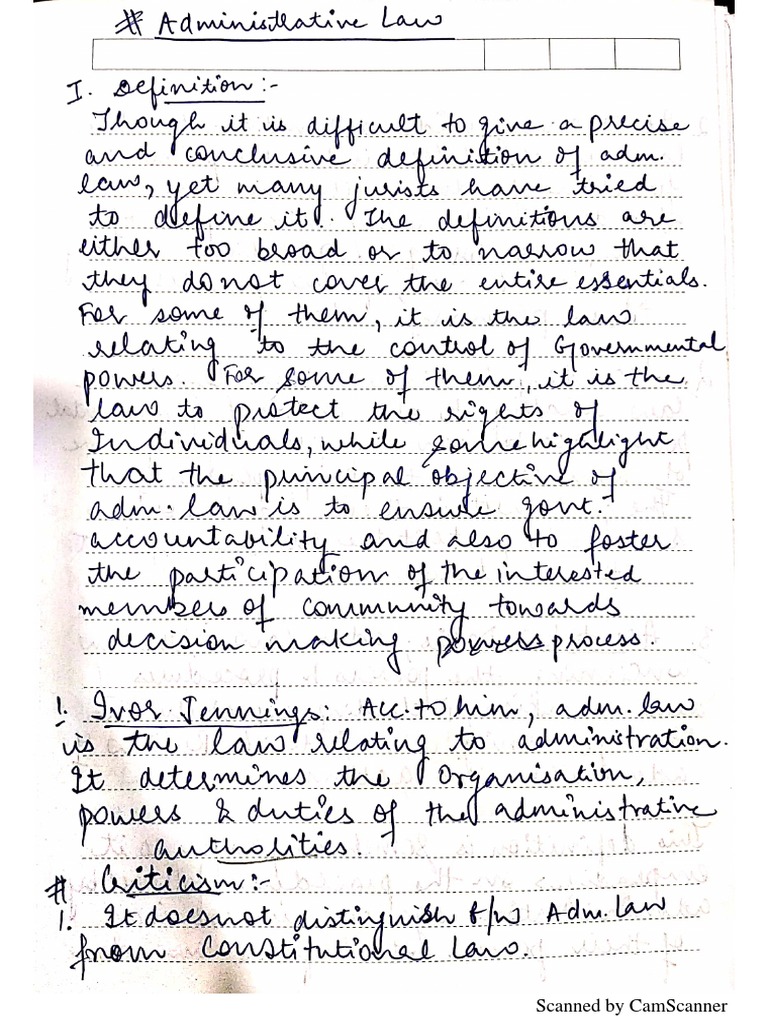 # Administrative Law
I. Definition :-
Though it is difficult to give a precise
and conclusive definition of adm.
law, yet many jurists have tried
to define it. The definitions are
either too broad or to narrow that
they do not cover the entire essentials.
For some of them, it is the law
relating to the control of Governmental
powers. For some of them, it is the
law to protect the rights of
Individuals, while some highlight
that the principal objective of
adm. law is to ensure govt.
accountability and also to foster
the participation of the interested
members of community towards
decision making powers process.
1. Ivor Jennings: Acc. to him, adm. law
is the law relating to administration.
It determines the Organisation,
powers & duties of the administrative
autholities.
# Criticism :-
1. It doesnot distinguish b/w Adm. law
from Constitutional Law.
Scanned by CamScanner